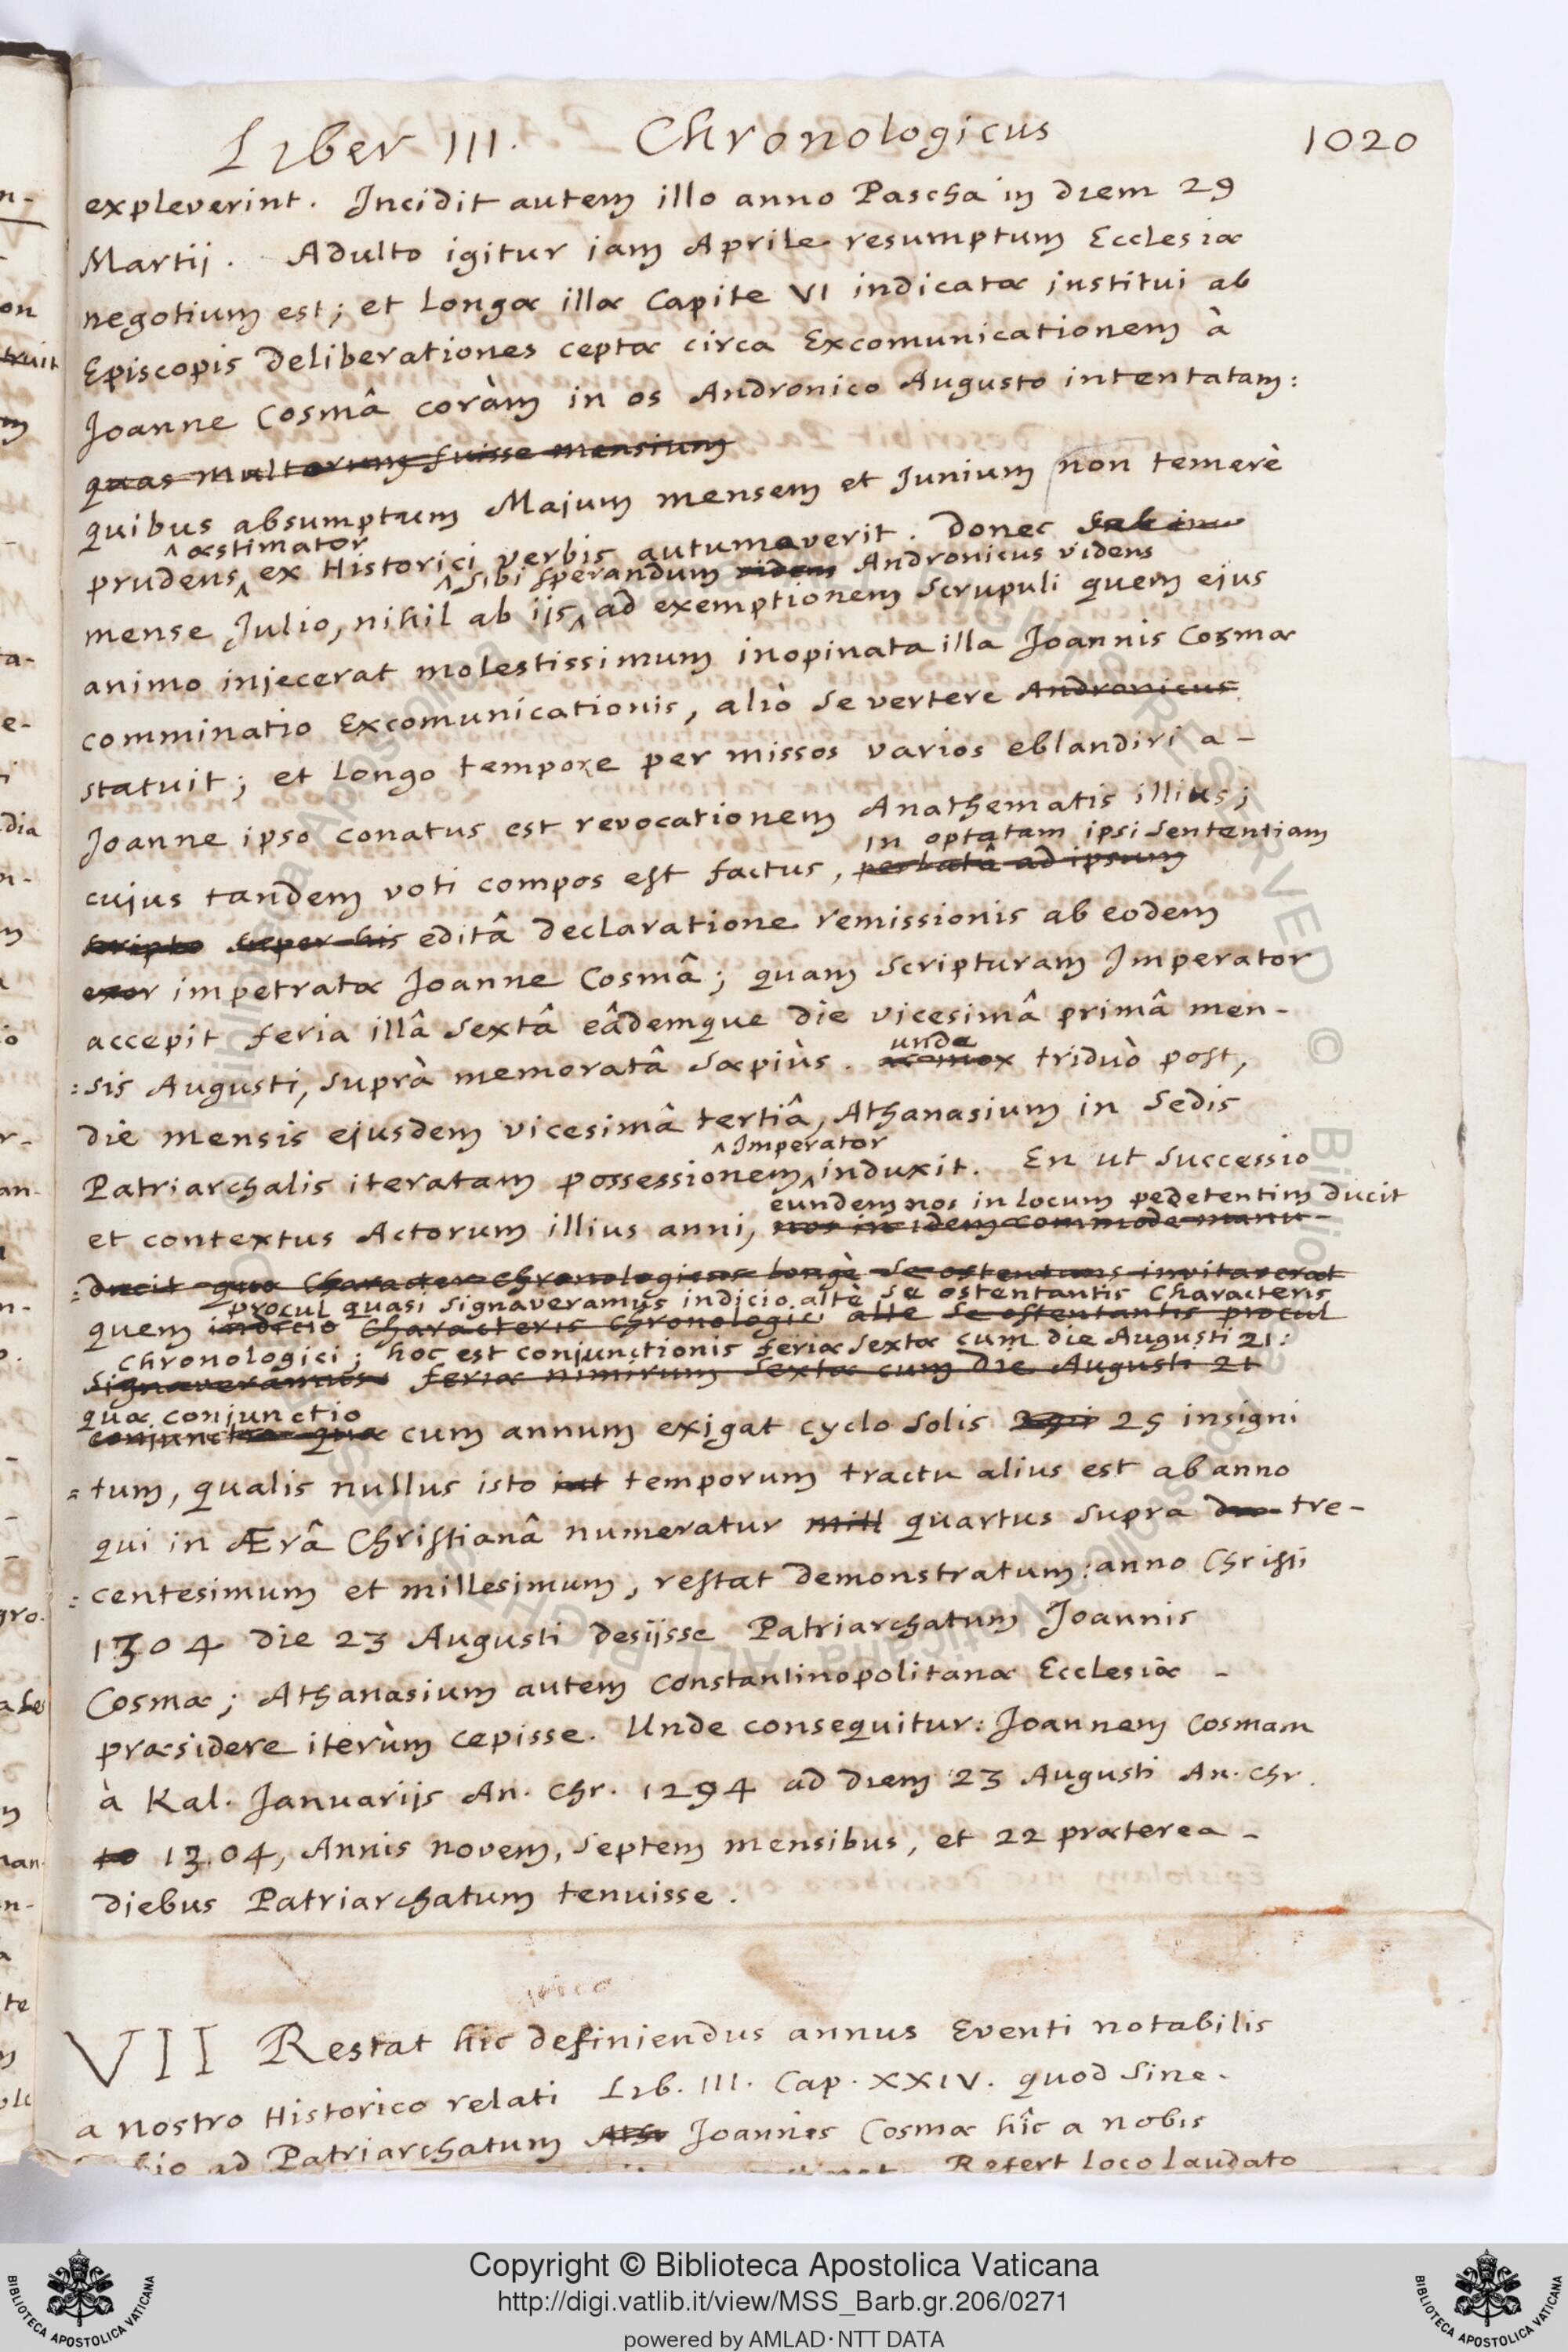 Liber III. Chronologicus 1020
expleverint. Incidit autem illo anno Pascha in diem 29
Martij. Adulto igitur iam Aprile resumptum Ecclesiæ
negotium est; et longæ illæ Capite VI indicatæ institui ab
Episcopis deliberationes ceptæ circa Excomunicationem à
Joanne Cosmâ coràm in os Andronico Augusto intentatam:
quas multorum fuisse mensium
quibus absumptum Majum mensem et Junium non temerè
^ æstimator
prudens ^ ex Historici verbis autumaverit. Donec
^ sibi sperandum videns Andronicus videns
mense Julio, nihil ab ijs ^ ad exemptionem scrupuli quem ejus
animo injecerat molestissimum inopinata illa Joannis Cosmæ
comminatio Excomunicationis, aliò se vertere Andronicus
statuit; et longo tempore per missos varios eblandiri a-
Joanne ipso conatus est revocationem Anathematis illius;
in optatam ipsi sententiam
cujus tandem voti compos est factus, perlatâ ad ipsum
scripto super his editâ declaratione remissionis ab eodem
exor impetratæ Joanne Cosmâ; quam scripturam Imperator
accepit feria illâ sextâ eâdemque die vicesimâ primâ men-
:sis Augusti, suprà memoratâ sæpiùs. triduò post,
unde
die mensis ejusdem vicesimâ tertiâ, Athanasium in sedis
^ Imperator
Patriarchalis iteratam possessionem ^ induxit. En ut successio
eundem nos in locum pedetentim ducit
et contextus Actorum illius anni, nos in idem commode manu-
:ducit quo Character Chronologicus longè se ostentans invitaverat
procul quasi signaveramus indicio altè se ostentantis Characteris
quem indicio Characteris Chronologici alte se ostentantis procul
Chronologici; hoc est conjunctionis feriæ sextæ cum die Augusti 21:
signaveramus: feriæ nimirum sextæ cum die Augusti 21
quæ conjunctio
conjunctio quæ cum annum exigat cyclo solis 25 insigni
:tum, qualis nullus isto int temporum tractu alius est ab anno
qui in Ærâ Christianâ numeratur mill quartus supra duo tre-
:centesimum et millesimum, restat demonstratum: anno Christi
1304 die 23 Augusti desijsse Patriarchatum Joannis
Cosmæ; Athanasium autem Constantinopolitanæ Ecclesiæ -
præsidere iterùm cepisse. Unde consequitur: Joannem Cosmam
à Kal. Januarijs An. Chr. 1294 ad diem 23 Augusti An. Chr.
to 1304, Annis novem, septem mensibus, et 22 præterea -
diebus Patriarchatum tenuisse.
VII Restat hic definiendus annus Eventi notabilis
a nostro Historico relati Lib. III. Cap. XXIV. quod sine-
ad Patriarchatum Ath Joannis Cosmæ hîc a nobis
Refert loco laudato
Copyright © Biblioteca Apostolica Vaticana
http://digi.vatlib.it/view/MSS_Barb.gr.206/0271
powered by AMLAD·NTT DATA
BIBLIOTECA APOSTOLICA VATICANA
BIBLIOTECA APOSTOLICA VATICANA